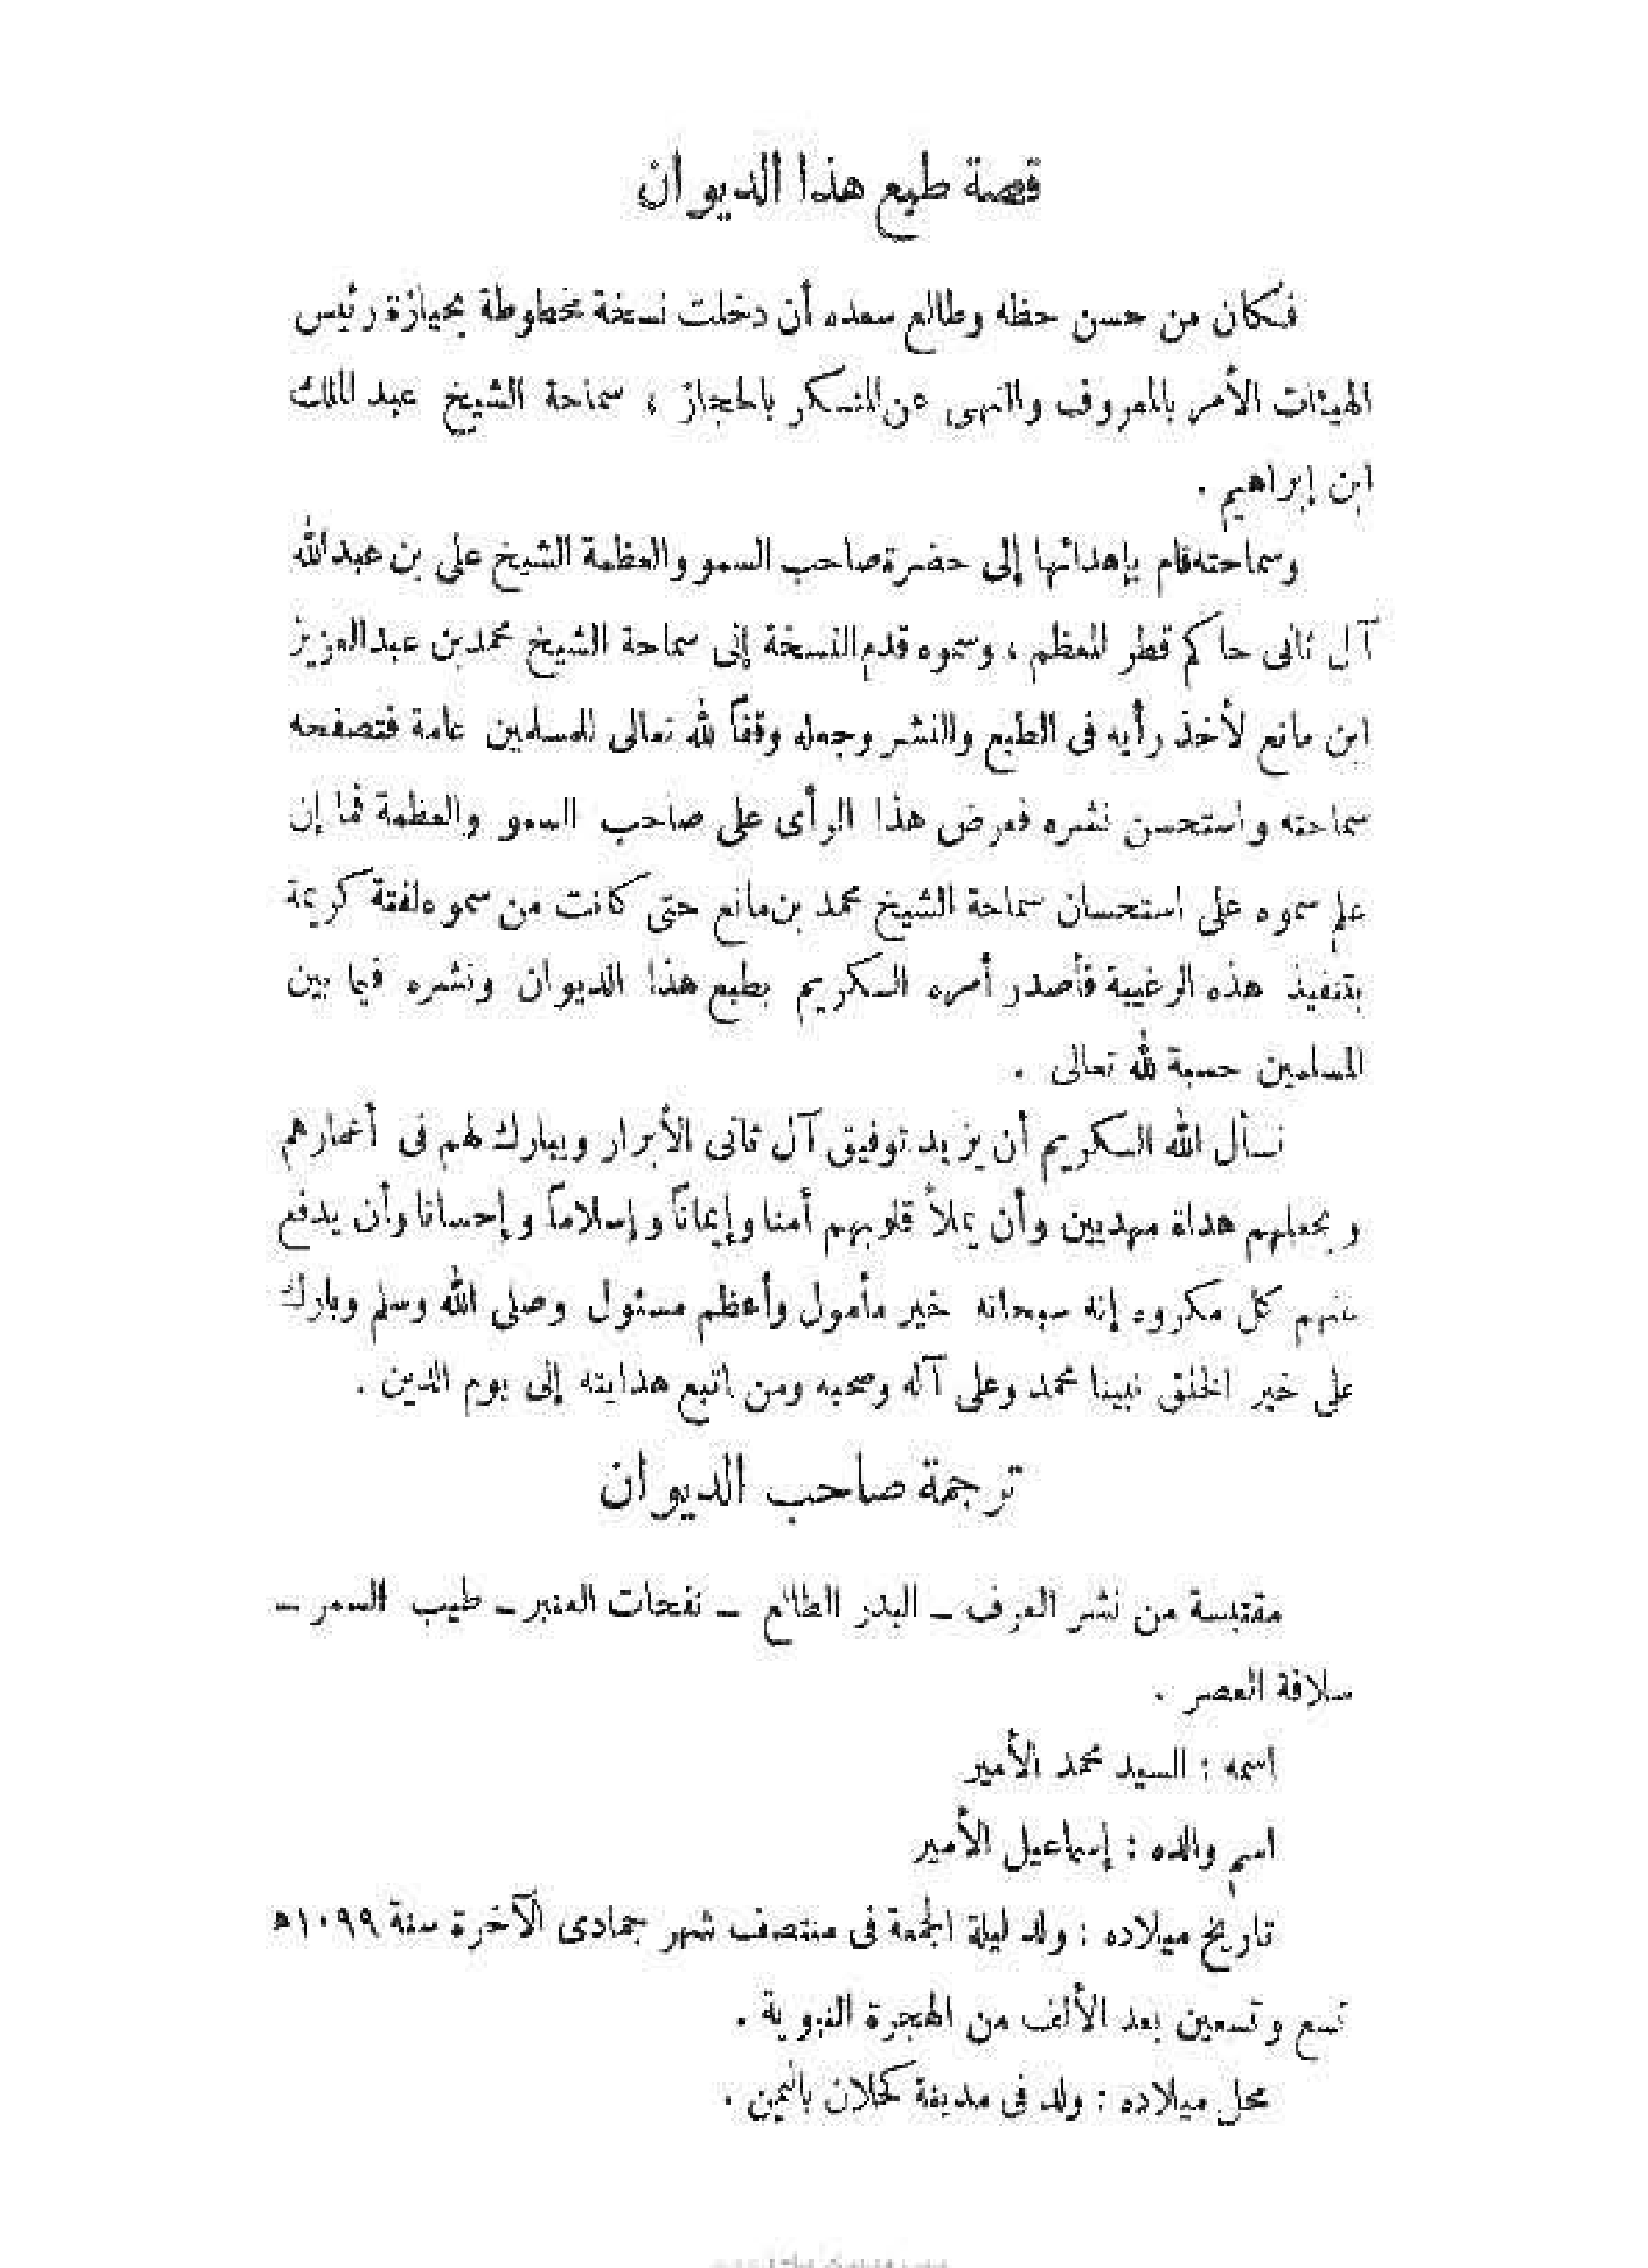 قصة طبع هذا الديوان
فكان من حسن حظه وطالع سعده أن دخلت نسخة مخطوطة بحيازة رئيس
الهيئات الأمر بالمعروف والنهى عن المنكر بالحجاز ، سماحة الشيخ عبد الملك
ابن إبراهيم .
وسماحته قام بإهدائها إلى حضرة صاحب السمو والعظمة الشيخ على بن عبد الله
آل ثانى حاكم قطر المعظم ، وسموه قدم النسخة إلى سماحة الشيخ محمد بن عبد العزيز
ابن مانع لأخذ رأيه فى الطبع والنشر وجعله وقفاً لله تعالى للمسلمين عامة فتصفحه
سماحته واستحسن نشره فعرض هذا الرأى على صاحب السمو والعظمة فما إن
علم سموه على استحسان سماحة الشيخ محمد بن مانع حتى كانت من سموه لفتة كريمة
بتنفيذ هذه الرغيبة فأصدر أمره الكريم بطبع هذا الديوان ونشره فيما بين
المسلمين حسبة لله تعالى .
نسأل الله الكريم أن يزيد توفيق آل ثانى الأبرار ويبارك لهم فى أعمارهم
ويجعلهم هداة مهديين وأن يملأ قلوبهم أمنا وإيماناً وإسلاماً وإحسانا وأن يدفع
عنهم كل مكروه إنه سبحانه خير مأمول وأعظم مسئول وصلى الله وسلم وبارك
على خير الخلق نبينا محمد وعلى آله وصحبه ومن اتبع هدايته إلى يوم الدين .
ترجمة صاحب الديوان
مقتبسة من نشر العرف – البدر الطالع – نفحات العنبر – طيب السمر –
سلافة العصر .
اسمه : السيد محمد الأمير
اسم والده : إسماعيل الأمير
تاريخ ميلاده : ولد ليلة الجمعة فى منتصف شهر جمادى الآخرة سنة ١٠٩٩ه
تسع وتسعين بعد الألف من الهجرة النبوية .
محل ميلاده : ولد فى مدينة كحلان باليمن .